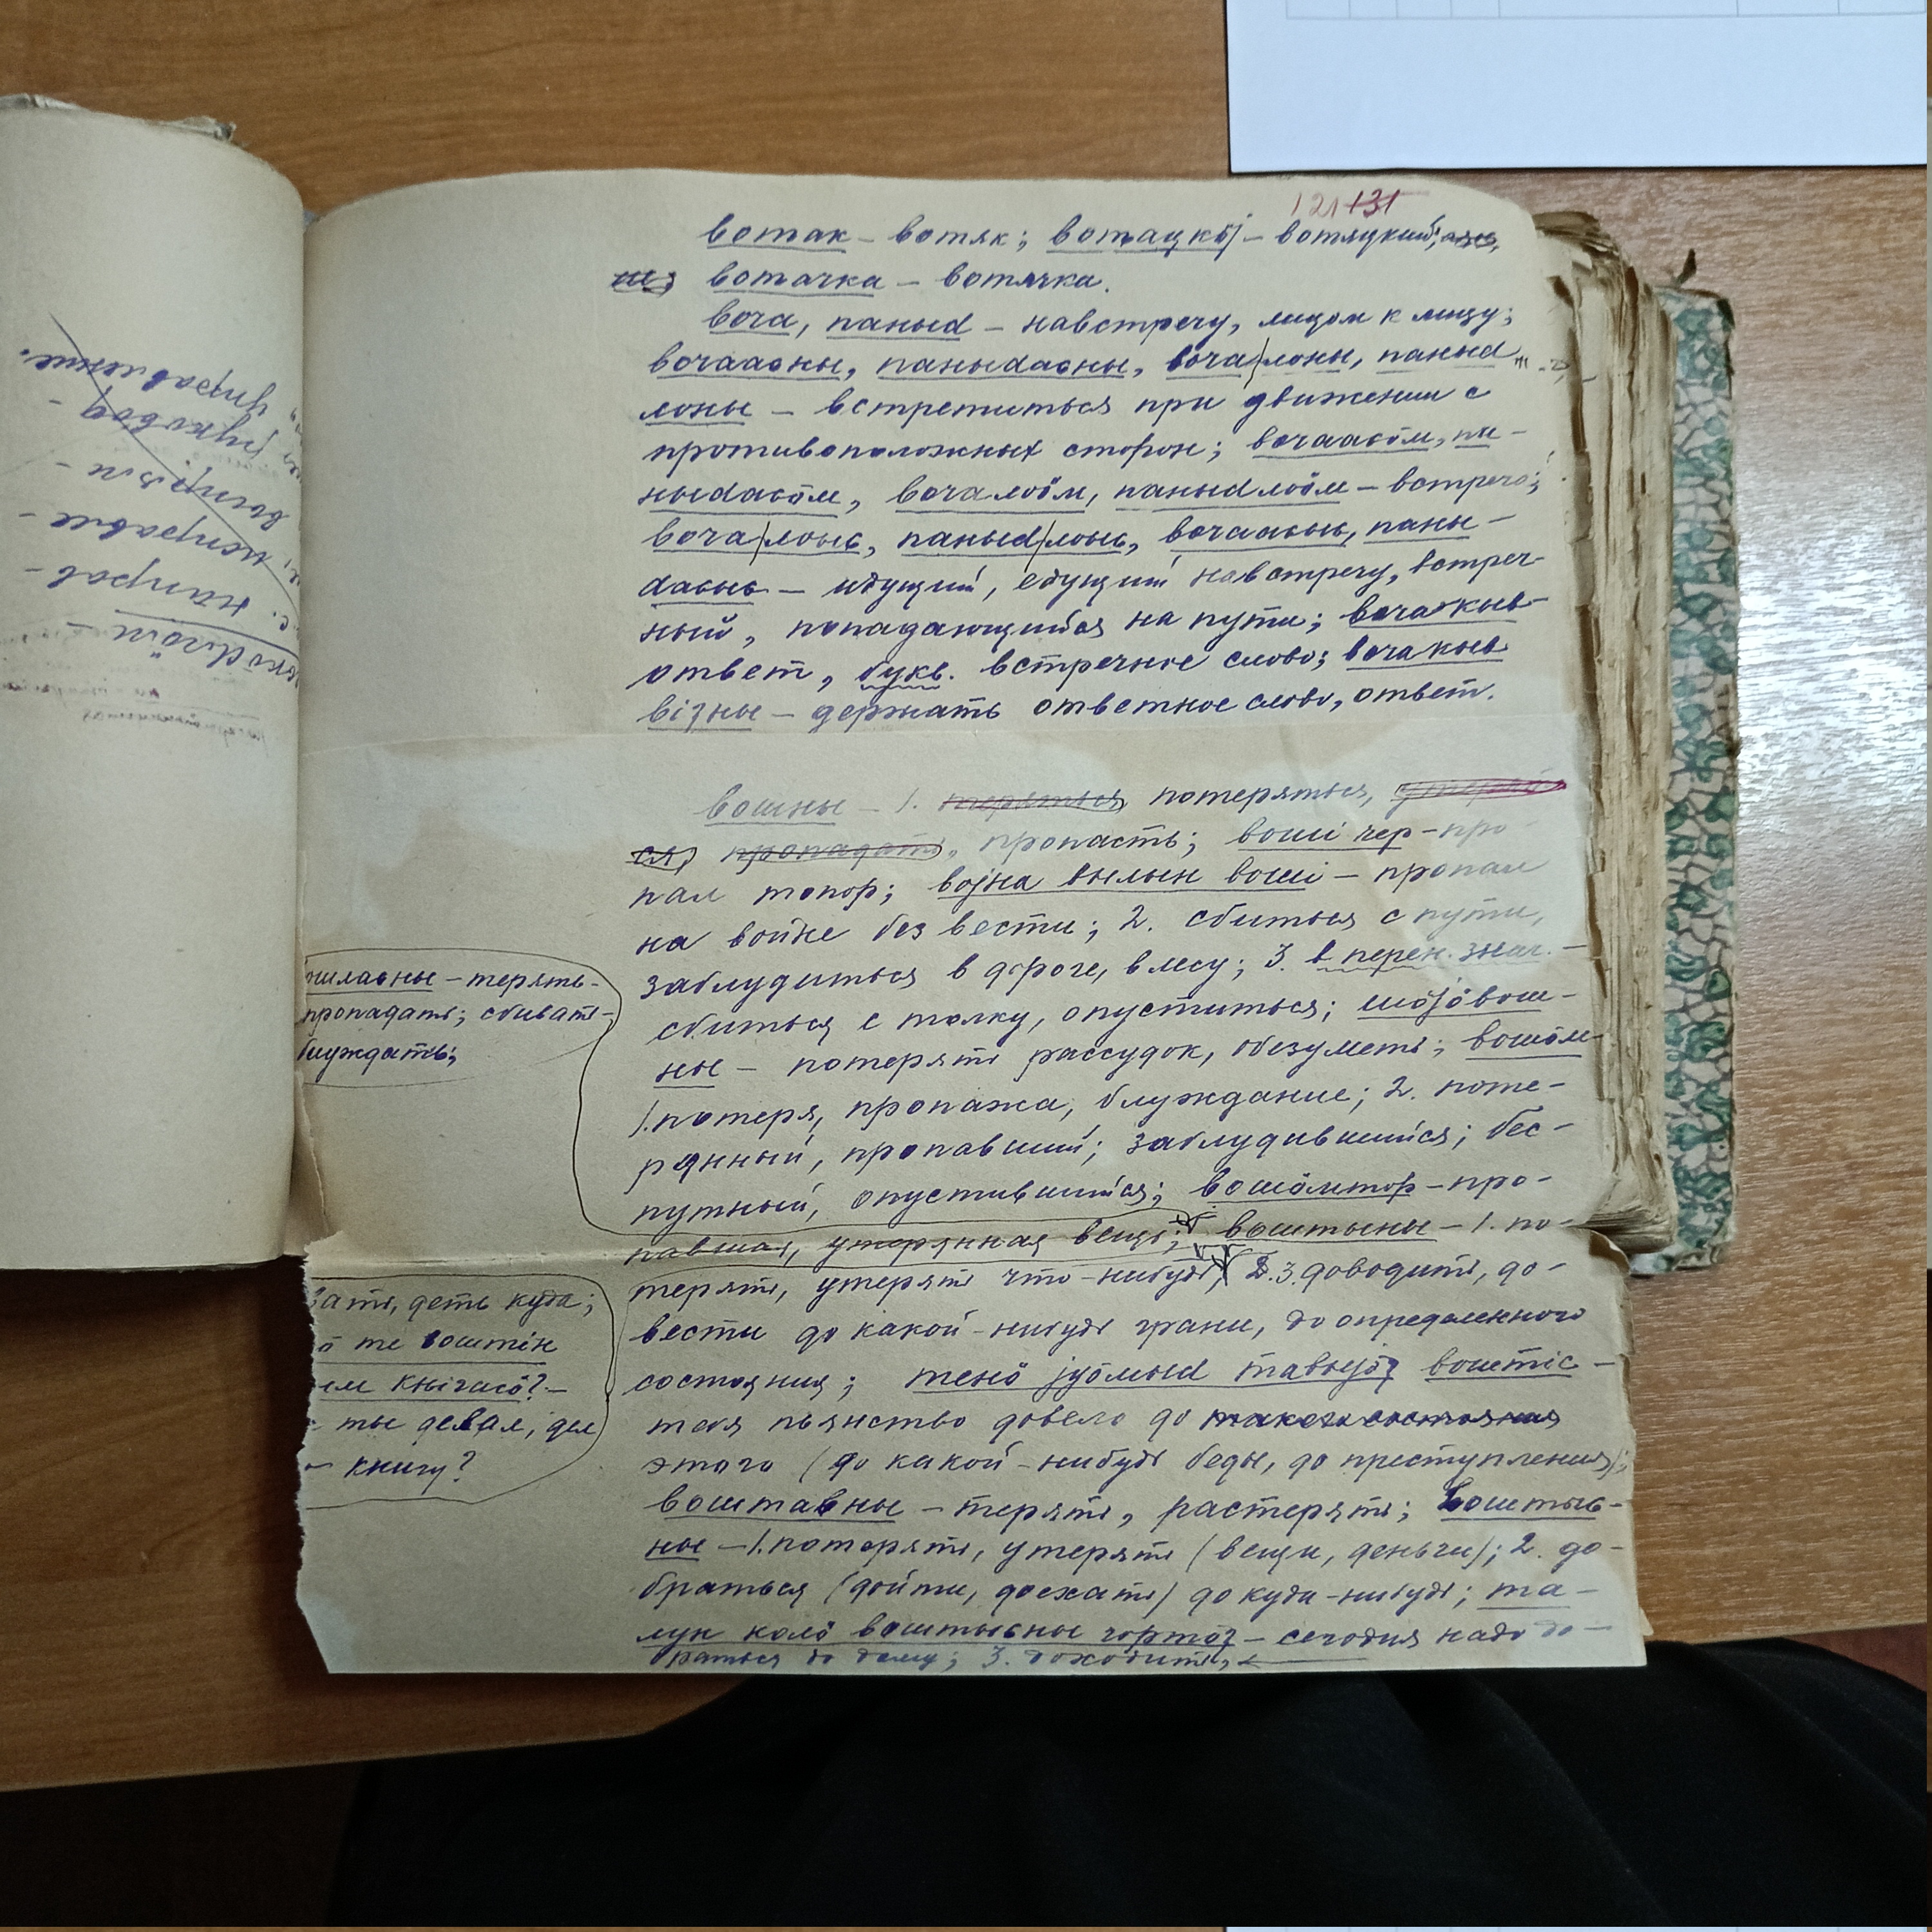 121 131
вотак – вотяк; вотацкӧј – вотяцкий;
вотачка – вотячка.
воча, паныd – навстречу, лицом к лицу;
вочааԍны, паныdаԍны, воча лоны, паныd
лоны – встретиться при движении с
противоположных сторон; вочааԍӧм, па-
ныdаԍӧм, вочалоӧм, паныdлоӧм – встреча;
воча лоыԍ, паныd лоыԍ, вочааԍыԍ, паны-
dаԍыԍ – идущий, едущий навстречу, встреч-
ный, попадающийся на пути; воча кыв –
ответ, букв. встречное слово; воча кыв
віӡны – держать ответное слово, ответ.
вошны – 1. теряться, потеряться,
ся, пропадать, пропасть; воші чер – про
пал топор; војна вылын воші – пропал
на войне без вести; 2. сбиться с пути,
заблудиться в дороге, в лесу; 3. в перен. знач. –
сбиться с толку, опуститься; шӧјӧвош-
ны – потерять рассудок, обезуметь; вошӧм –
1. потеря, пропажа, блуждание; 2. поте-
рянный, пропавший; заблудившийся; бес-
путный, опустившийся; вошӧмтор – про-
павшая, утерянная вещь; воштыны – 1. по-
терять, утерять что-нибудь, 2. 3. доводить, до-
вести до какой-нибудь грани, до определенного
состояния; тенӧ јуӧмыd тавыјӧӡ воштіс –
тебя пьянство довело до такого состояния
этого (до какой-нибудь беды, до преступления);
воштавны – терять, растерять; воштыԍ-
ны – 1. потерять, утерять (вещи, деньги); 2. до-
браться (дойти, доехать) до куда-нибудь; та-
лун колӧ воштыԍны гортӧӡ – сегодня надо до-
браться до дому; 3. доходить,
ошлавны – терять-
пропадать; сбивать-
блуждать;
вать, деть куда;
ӧ те воштін
ем кнігасӧ? –
ты девал, дел
книгу?